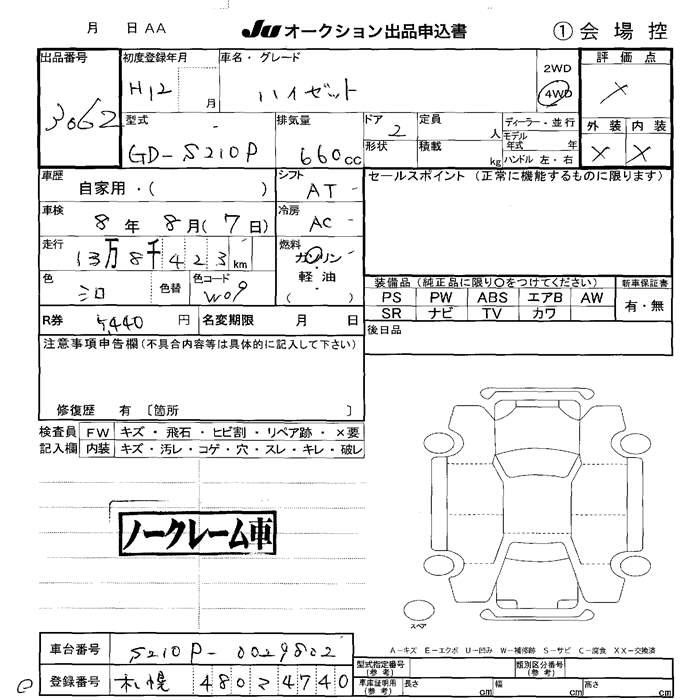 月 日 AA
JU オークション出品申込書
① 会場控
出品番号 3062
初度登録年月 H12 月
車名・グレード ハイゼット
2WD
4WD
評価点 ×
外装 × 内装 ×
型式 GD-S210P
排気量 660cc
ドア 2
定員 人
ディーラー・並行
モデル年式 年
形状
積載 kg
ハンドル 左・右
車歴 自家用・( )
シフト AT
セールスポイント (正常に機能するものに限ります)
車検 8年 8月(7日)
冷房 AC
走行 13万8千423km
燃料 ガソリン・軽油 ( )
色 シロ 色替
色コード W09
装備品(純正品に限り〇をつけてください)
新車保証書
PS PW ABS エアB AW
有・無
SR ナビ TV カワ
R券 5,440 円
名変期限 月 日
後日品
注意事項申告欄(不具合内容等は具体的に記入して下さい)
修復歴 有 〔箇所 〕
検査員 FW キズ・飛石・ヒビ割・リペア跡・×要
記入欄 内装 キズ・汚レ・コゲ・穴・スレ・キレ・破レ
ノークレーム車
スペア
A-キズ E-エクボ U-凹み W-補修跡 S-サビ C-腐食 XX-交換済
車台番号 S210P-0029802
登録番号 札幌 480 そ 4740
型式指定番号(参考)
類別区分番号(参考)
車庫証明用(参考) 長さ cm 幅 cm 高さ cm